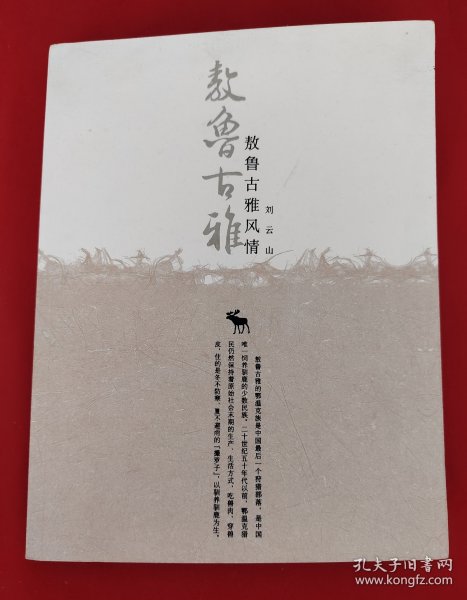 敖鲁古雅
敖鲁古雅风情
刘云山
敖鲁古雅的鄂温克族是中国最后一个狩猎部落，是中国
唯一饲养驯鹿的少数民族。二十世纪五十年代以前，鄂温克猎
民仍然保持着原始社会末期的生产、生活方式，吃兽肉、穿兽
皮，住的是冬不防寒、夏不避雨的“撮罗子”，以驯养驯鹿为生。
孔夫子旧书网
www.kongfz.com